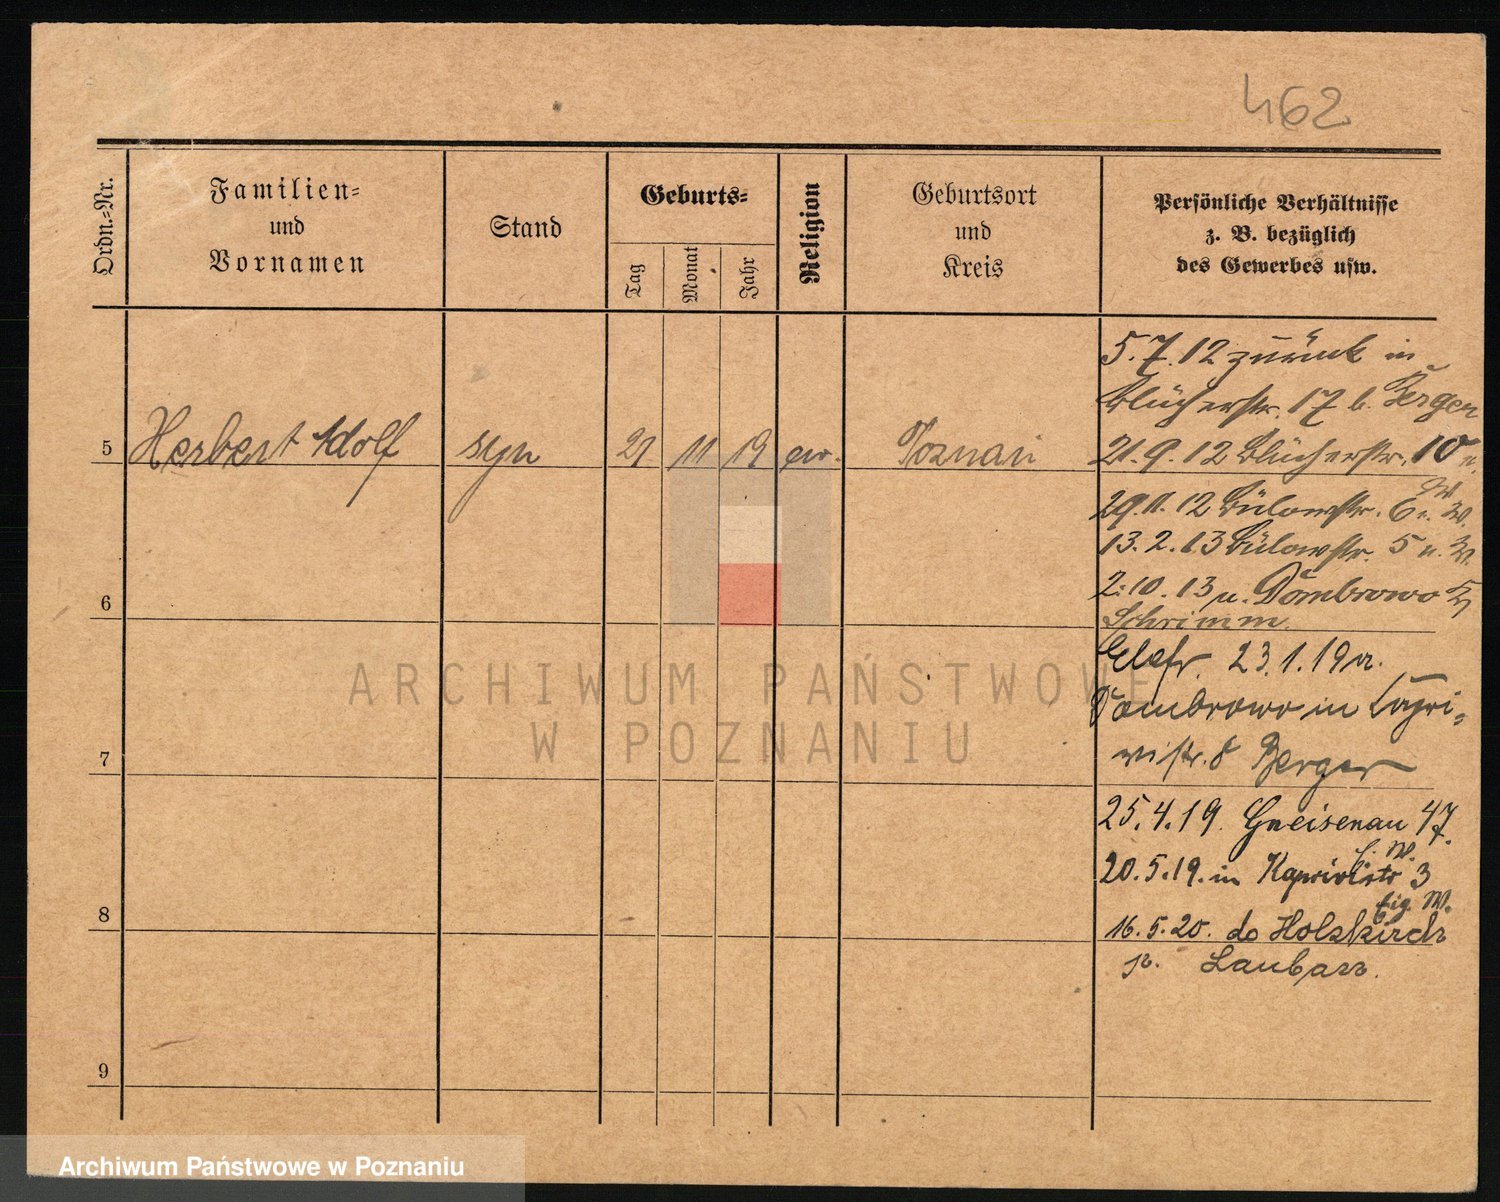 462
Ordn.=Nr.
Familien=
und
Vornamen
Stand
Geburts=
Tag
Monat
Jahr
Religion
Geburtsort
und
Kreis
Persönliche Verhältnisse
z. B. bezüglich
des Gewerbes usw.
5 Herbert Adolf syn 21 11 19 ew. Poznań
5.7.12 zurück in
Blücherstr. 17 b. Berger
21.9.12 Blücherstr. 10
29.11.12 Bülowstr. 6
13.2.13 Bülowstr. 5
2.10.13 n. Dombrowo
Schrimm
23.1.19
Dombrowo in Capri=
vistr. 8 Berger
25.4.19. Gneisenau 47.
20.5.19. in Kaprivistr 3
16.5.20. do Holzkirch
p. Lauban.
6
7
8
9
ARCHIWUM PAŃSTWOWE
W POZNANIU
Archiwum Państwowe w Poznaniu